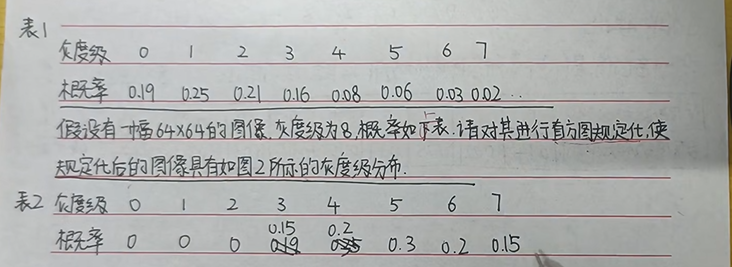 表1
灰度级 0 1 2 3 4 5 6 7
概率 0.19 0.25 0.21 0.16 0.08 0.06 0.03 0.02 ..
假设有一幅64×64的图像,灰度级为8,概率如下表.请对其进行直方图规定化,使
规定化后的图像具有如图2所示的灰度级分布.
表2 灰度级 0 1 2 3 4 5 6 7
0.15 0.2
概率 0 0 0 0.19 0.25 0.3 0.2 0.15